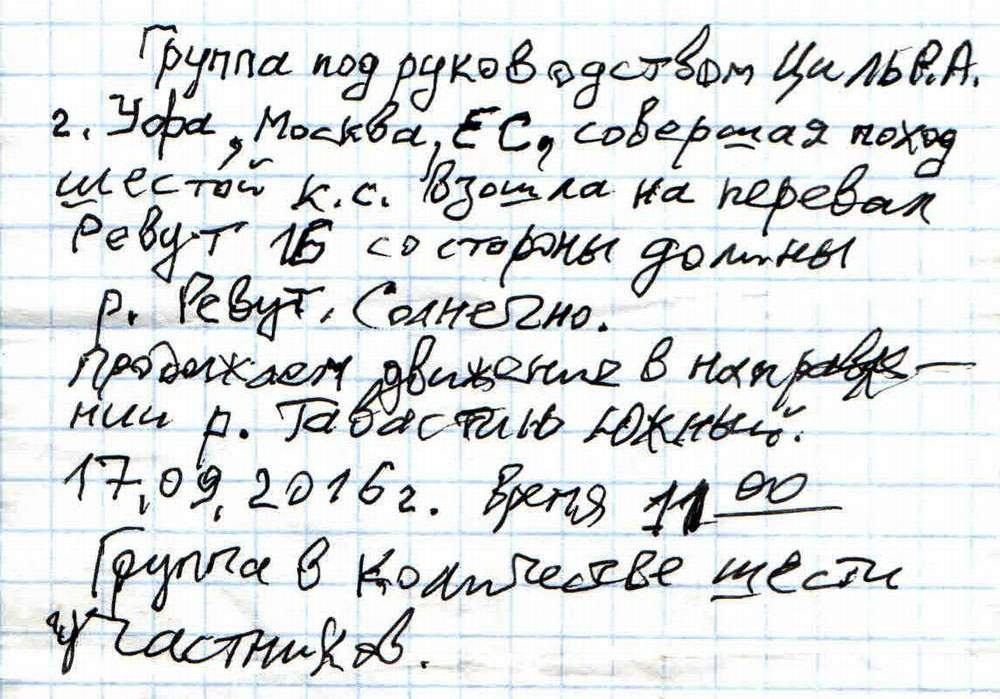 Группа под руководством Циль Р.А.
г. Уфа, Москва, ЕС, совершая поход
шестой к.с. взошла на перевал
Ревут 1Б со стороны долины
р. Ревут. Солнечно.
Продолжаем движение в направле-
нии р. Тавастию Южный.
17.09.2016г. Время 11 00
Группа в количестве шести
участников.